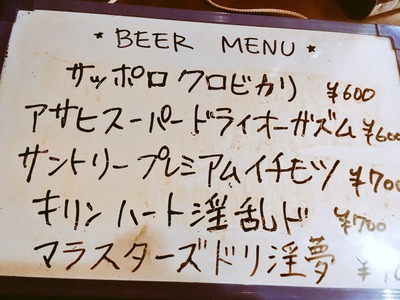 * BEER MENU *
サッポロ クロビカリ ¥600
アサヒスーパードライオーガズム ¥600
サントリープレミアムイチモツ ¥700
キリンハート淫乱ド ¥700
マラスターズドリ淫夢